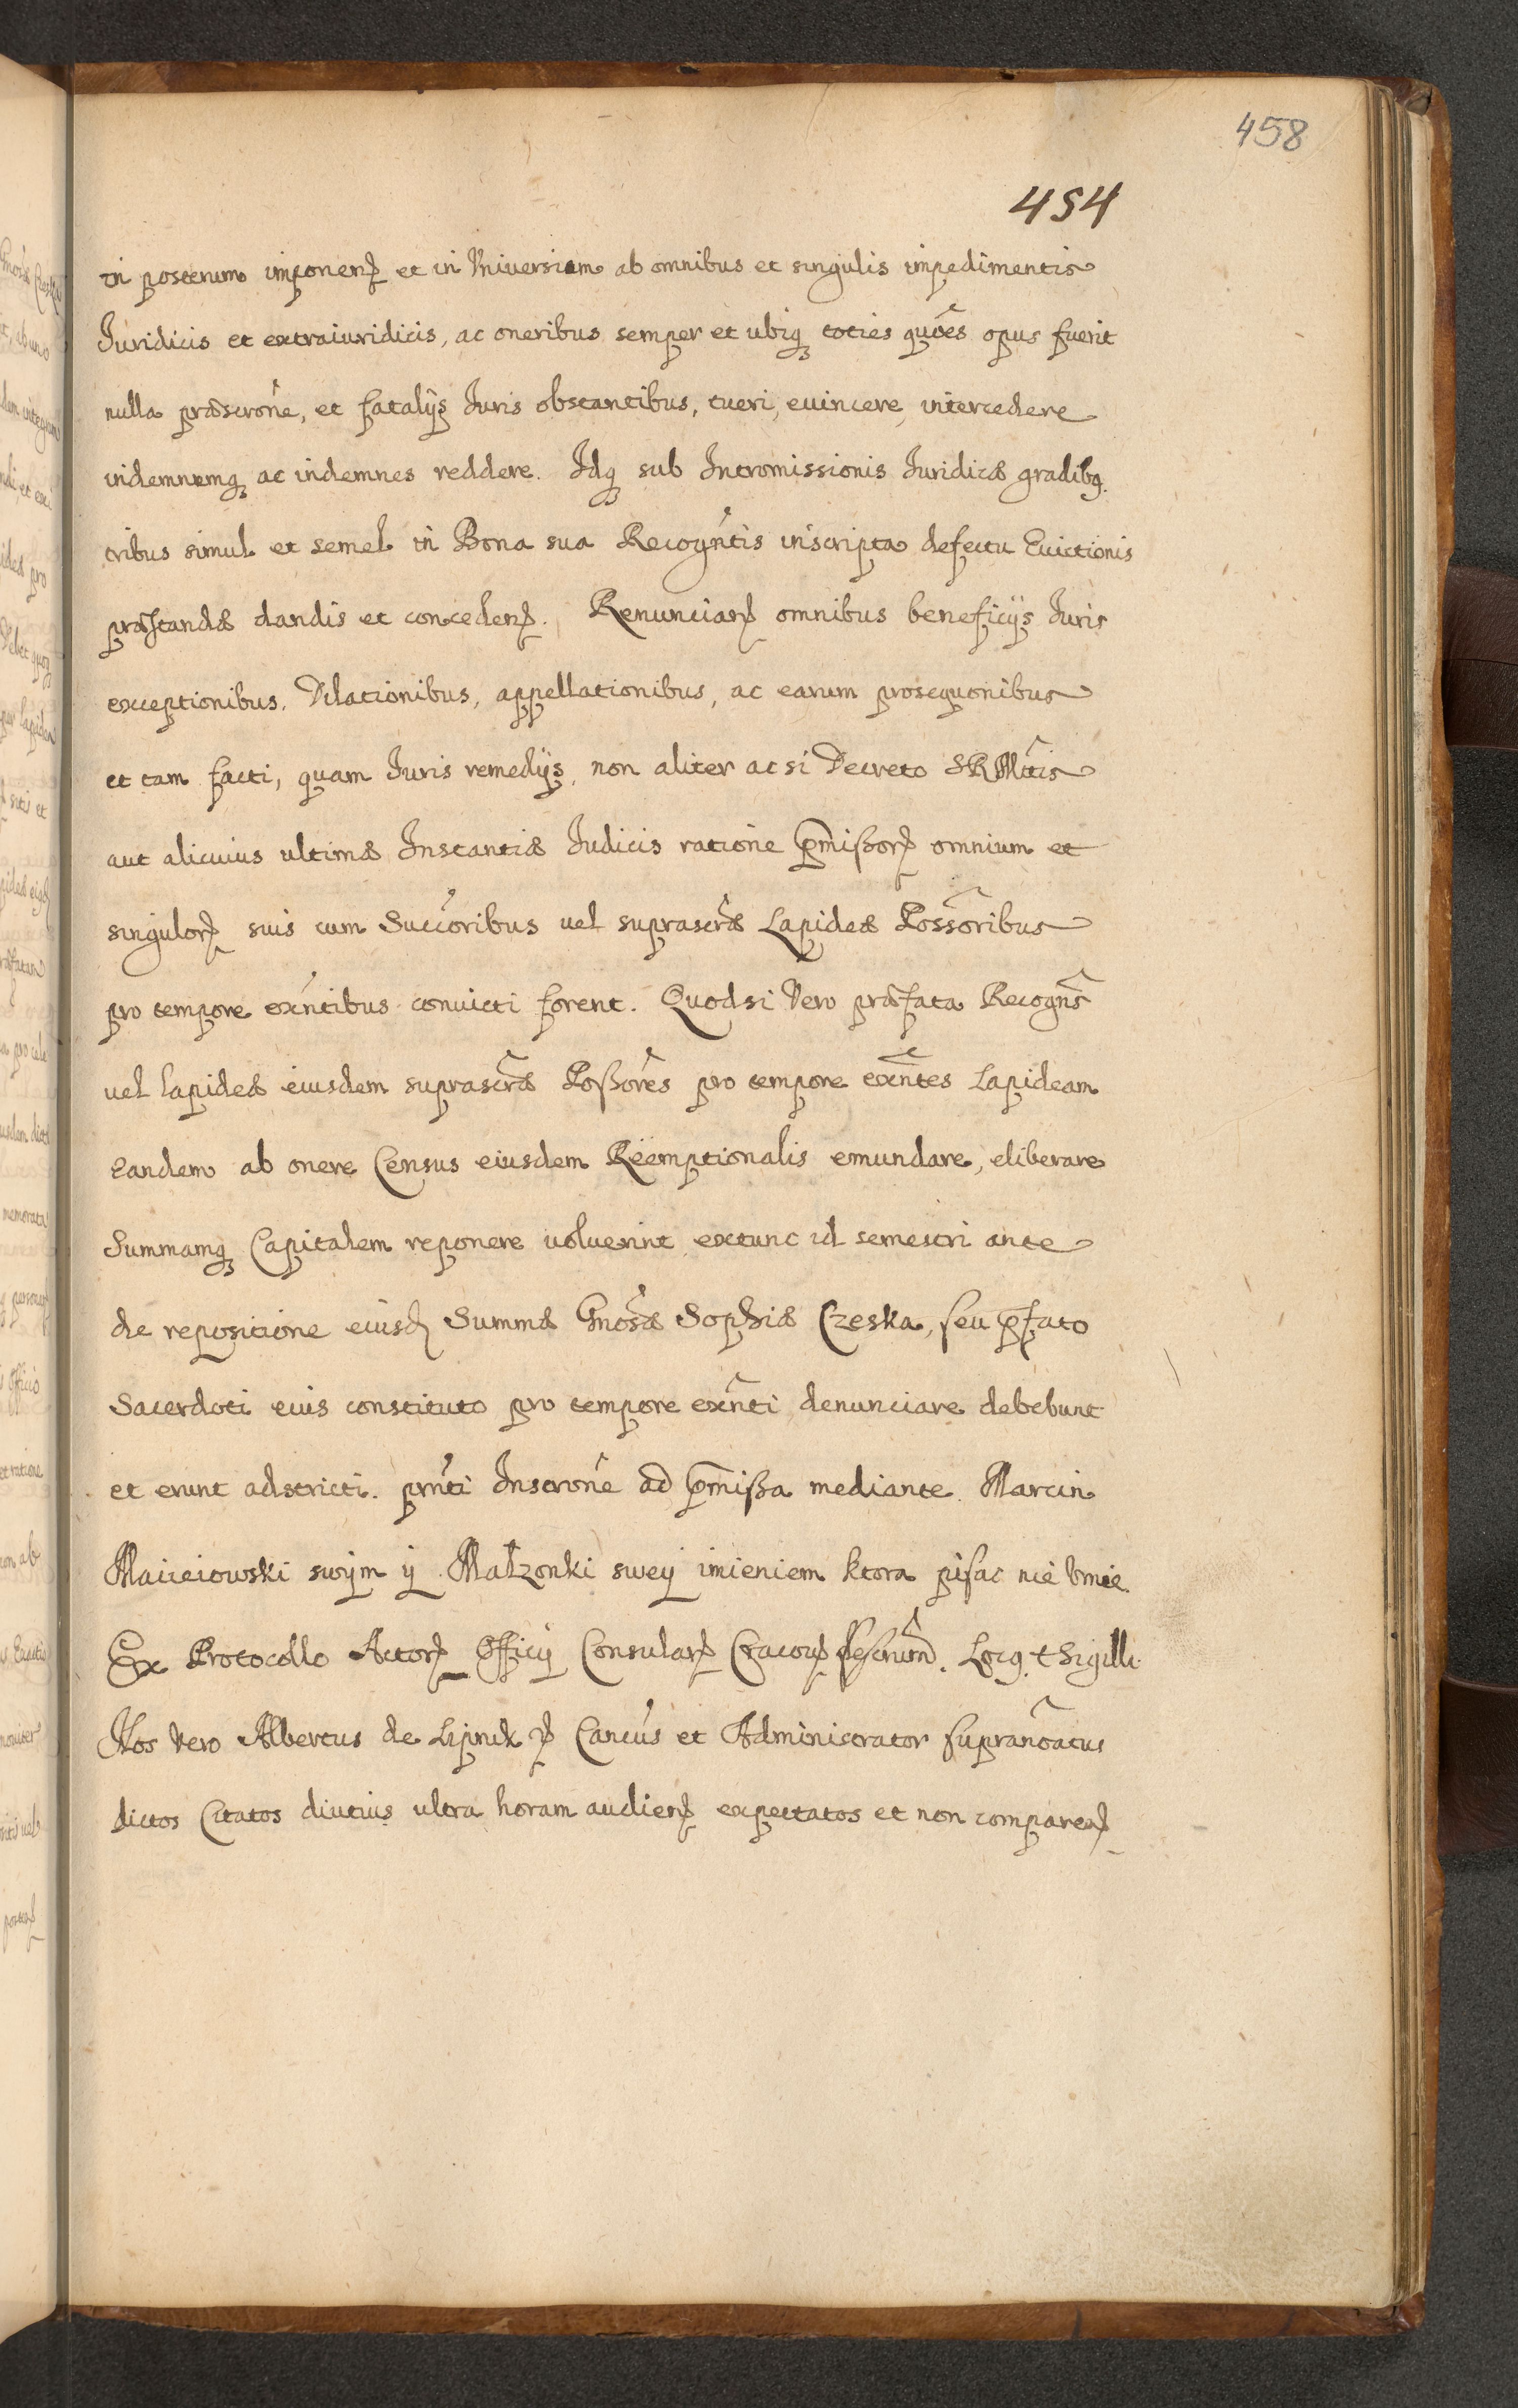 458
454
in posterum imponen͡ et in Vniversum ab omnibus et singulis impedimentis
Iuridicis et extraiuridicis, ac oneribus semper et ubiq̨ toties quo͠es opus fuerit
nulla præscro͠ne, et fatalijs Iuris obstantibus, tueri, euincere, intercedere
indemnemq̨ ac indemnes reddere. Idq̨ sub Intromissionis Iuridicæ gradibq̨.
tribus simul et semel in Bona sua Recogn͠tis inscripta defectu Euictionis
præstandæ dandis et conceden͡. Renuncian͡ omnibus beneficijs Iuris
exceptionibus, Dilationibus, appellationibus, ac earum prosequonibus
et tam facti, quam Iuris remedijs, non aliter ac si Decreto SRM͠tis
aut alicuius ultimæ Instantiæ Iudicis ratione p͠mißor͡ omnium et
singulor͡ suis cum Succ͠oribus uel suprascr͠æ Lapideæ Poss͠oribus
pro tempore ex͠ntibus conuicti forent. Quodsi Vero præfata Recogn͠s
uel lapideæ eiusdem suprascr͠æ Poßor͠es pro tempore ex͠ntes Lapideam
Eandem ab onere Census eiusdem Reemptionalis emundare, eliberare
Summamq̨ Capitalem reponere uoluerint extunc id semestri ante
de repositione eiusd͡ Summæ Gn͠osæ Sophiæ Czeska, seu p͠fato
Sacerdoti eius constituto pro tempore ex͠nti denunciare debebunt
et erunt adstricti. pr͠nti Inscro͠ne ad p͠mißa mediante. Marcin
Macieiowski swym ÿ Małzonki swey imieniem ktora pisac nie Vmie.
Ex Protocollo Actor͡ Officij Consular͡ Cracou͡ descrum͠. Locq̨ + Sigilli
Nos Vero Albertus de Lipnik Canc͠us et Administrator supran͠oatus
dictos Citatos diutius ultra horam audien͡ expectatos et non comparen͡